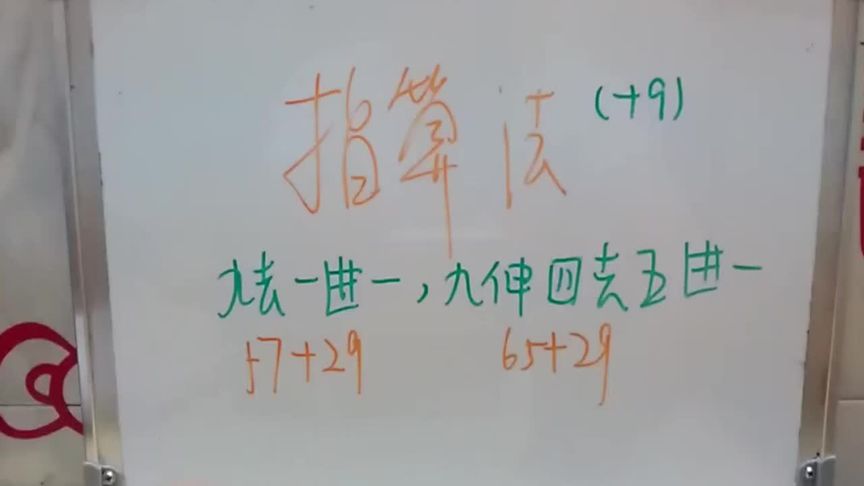 指算法 (+9)
九去一进一，九伸四去五进一
57+29 65+29